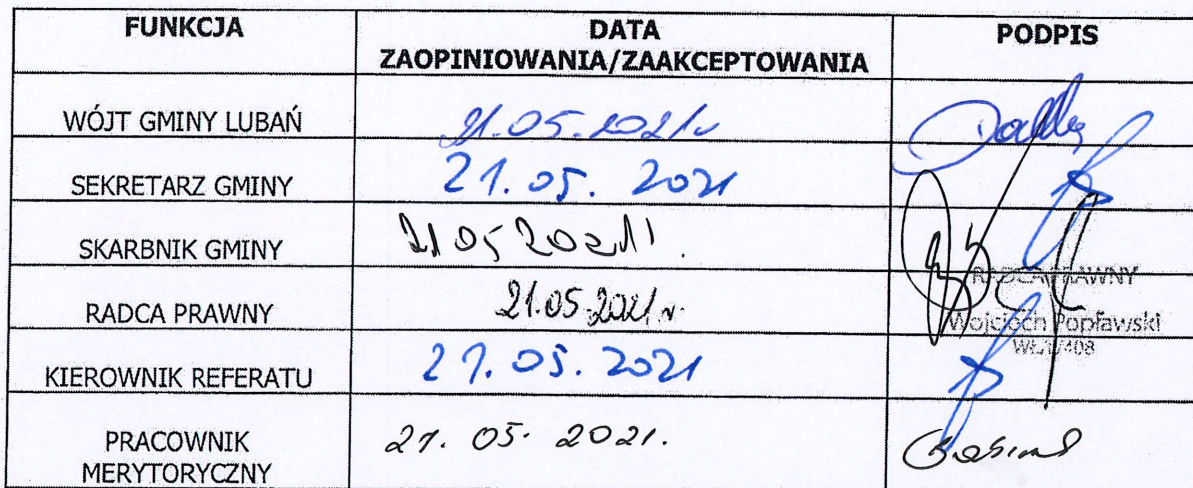 FUNKCJA
DATA
ZAOPINIOWANIA/ZAAKCEPTOWANIA
PODPIS
WÓJT GMINY LUBAŃ
21.05.2021r
SEKRETARZ GMINY
21. 05. 2021
SKARBNIK GMINY
21 05 2021
RADCA PRAWNY
21.05.2021 r.
RADCA PRAWNY
Wojciech Popławski
KIEROWNIK REFERATU
21. 05. 2021
PRACOWNIK
MERYTORYCZNY
21. 05. 2021.